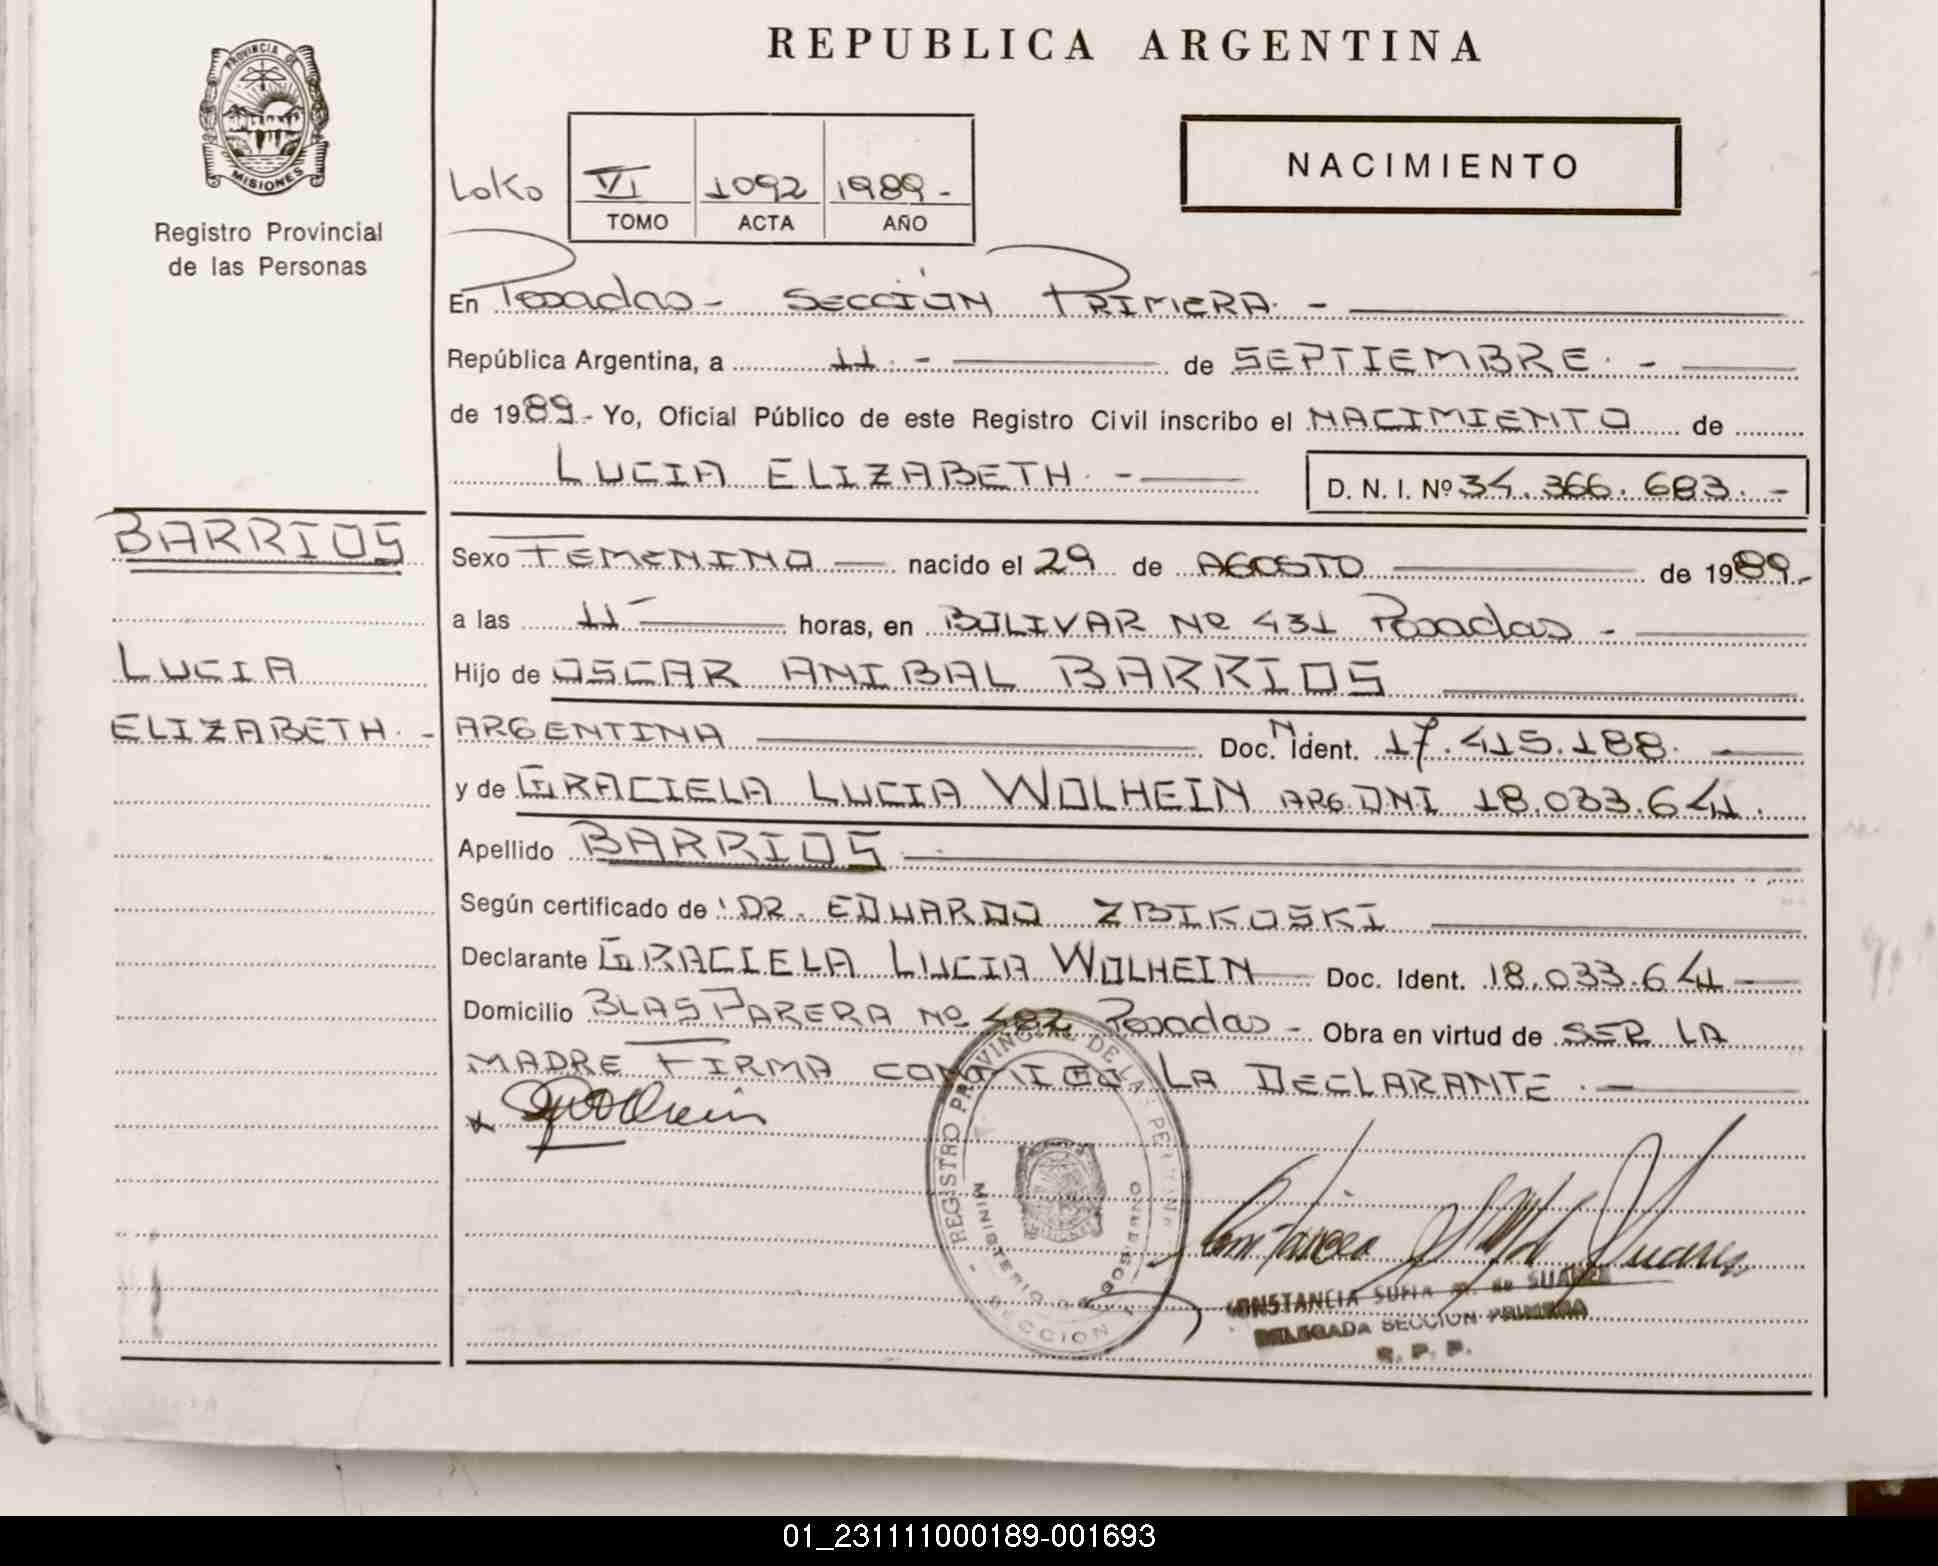 REPUBLICA ARGENTINA
PROVINCIA DE
MISIONES
Registro Provincial
de las Personas
NACIMIENTO
Loko VI 1092 1989.-
TOMO ACTA AÑO
En Posadas - SECCIÓN PRIMERA. -
República Argentina, a 11. - de SEPTIEMBRE. -
de 1989.- Yo, Oficial Público de este Registro Civil inscribo el NACIMIENTO de
LUCIA ELIZABETH. - D. N. I. Nº 34.366.683. -
BARRIOS
LUCIA
ELIZABETH. -
Sexo FEMENINO nacido el 29 de AGOSTO de 1989.-
a las 11 horas, en BOLIVAR Nº 431 Posadas -
Hijo de OSCAR ANIBAL BARRIOS
ARGENTINA Doc. N Ident. 17.415.188. -
y de GRACIELA LUCIA WOLHEIN ARG. DNI 18.033.641.
Apellido BARRIOS
Según certificado de DR. EDUARDO ZBIKOSKI
Declarante GRACIELA LUCIA WOLHEIN Doc. Ident. 18.033.641
Domicilio BLAS PARERA Nº 482 Posadas - Obra en virtud de SER LA
MADRE FIRMA CONMIGO LA DECLARANTE. -
REGISTRO PROVINCIAL DE LAS PERSONAS
MINISTERIO DE GOBIERNO
SECCION 1
CONSTANCIA SOFIA M. de SUAREZ
DELEGADA SECCION PRIMERA
R. P. P.
01_231111000189-001693